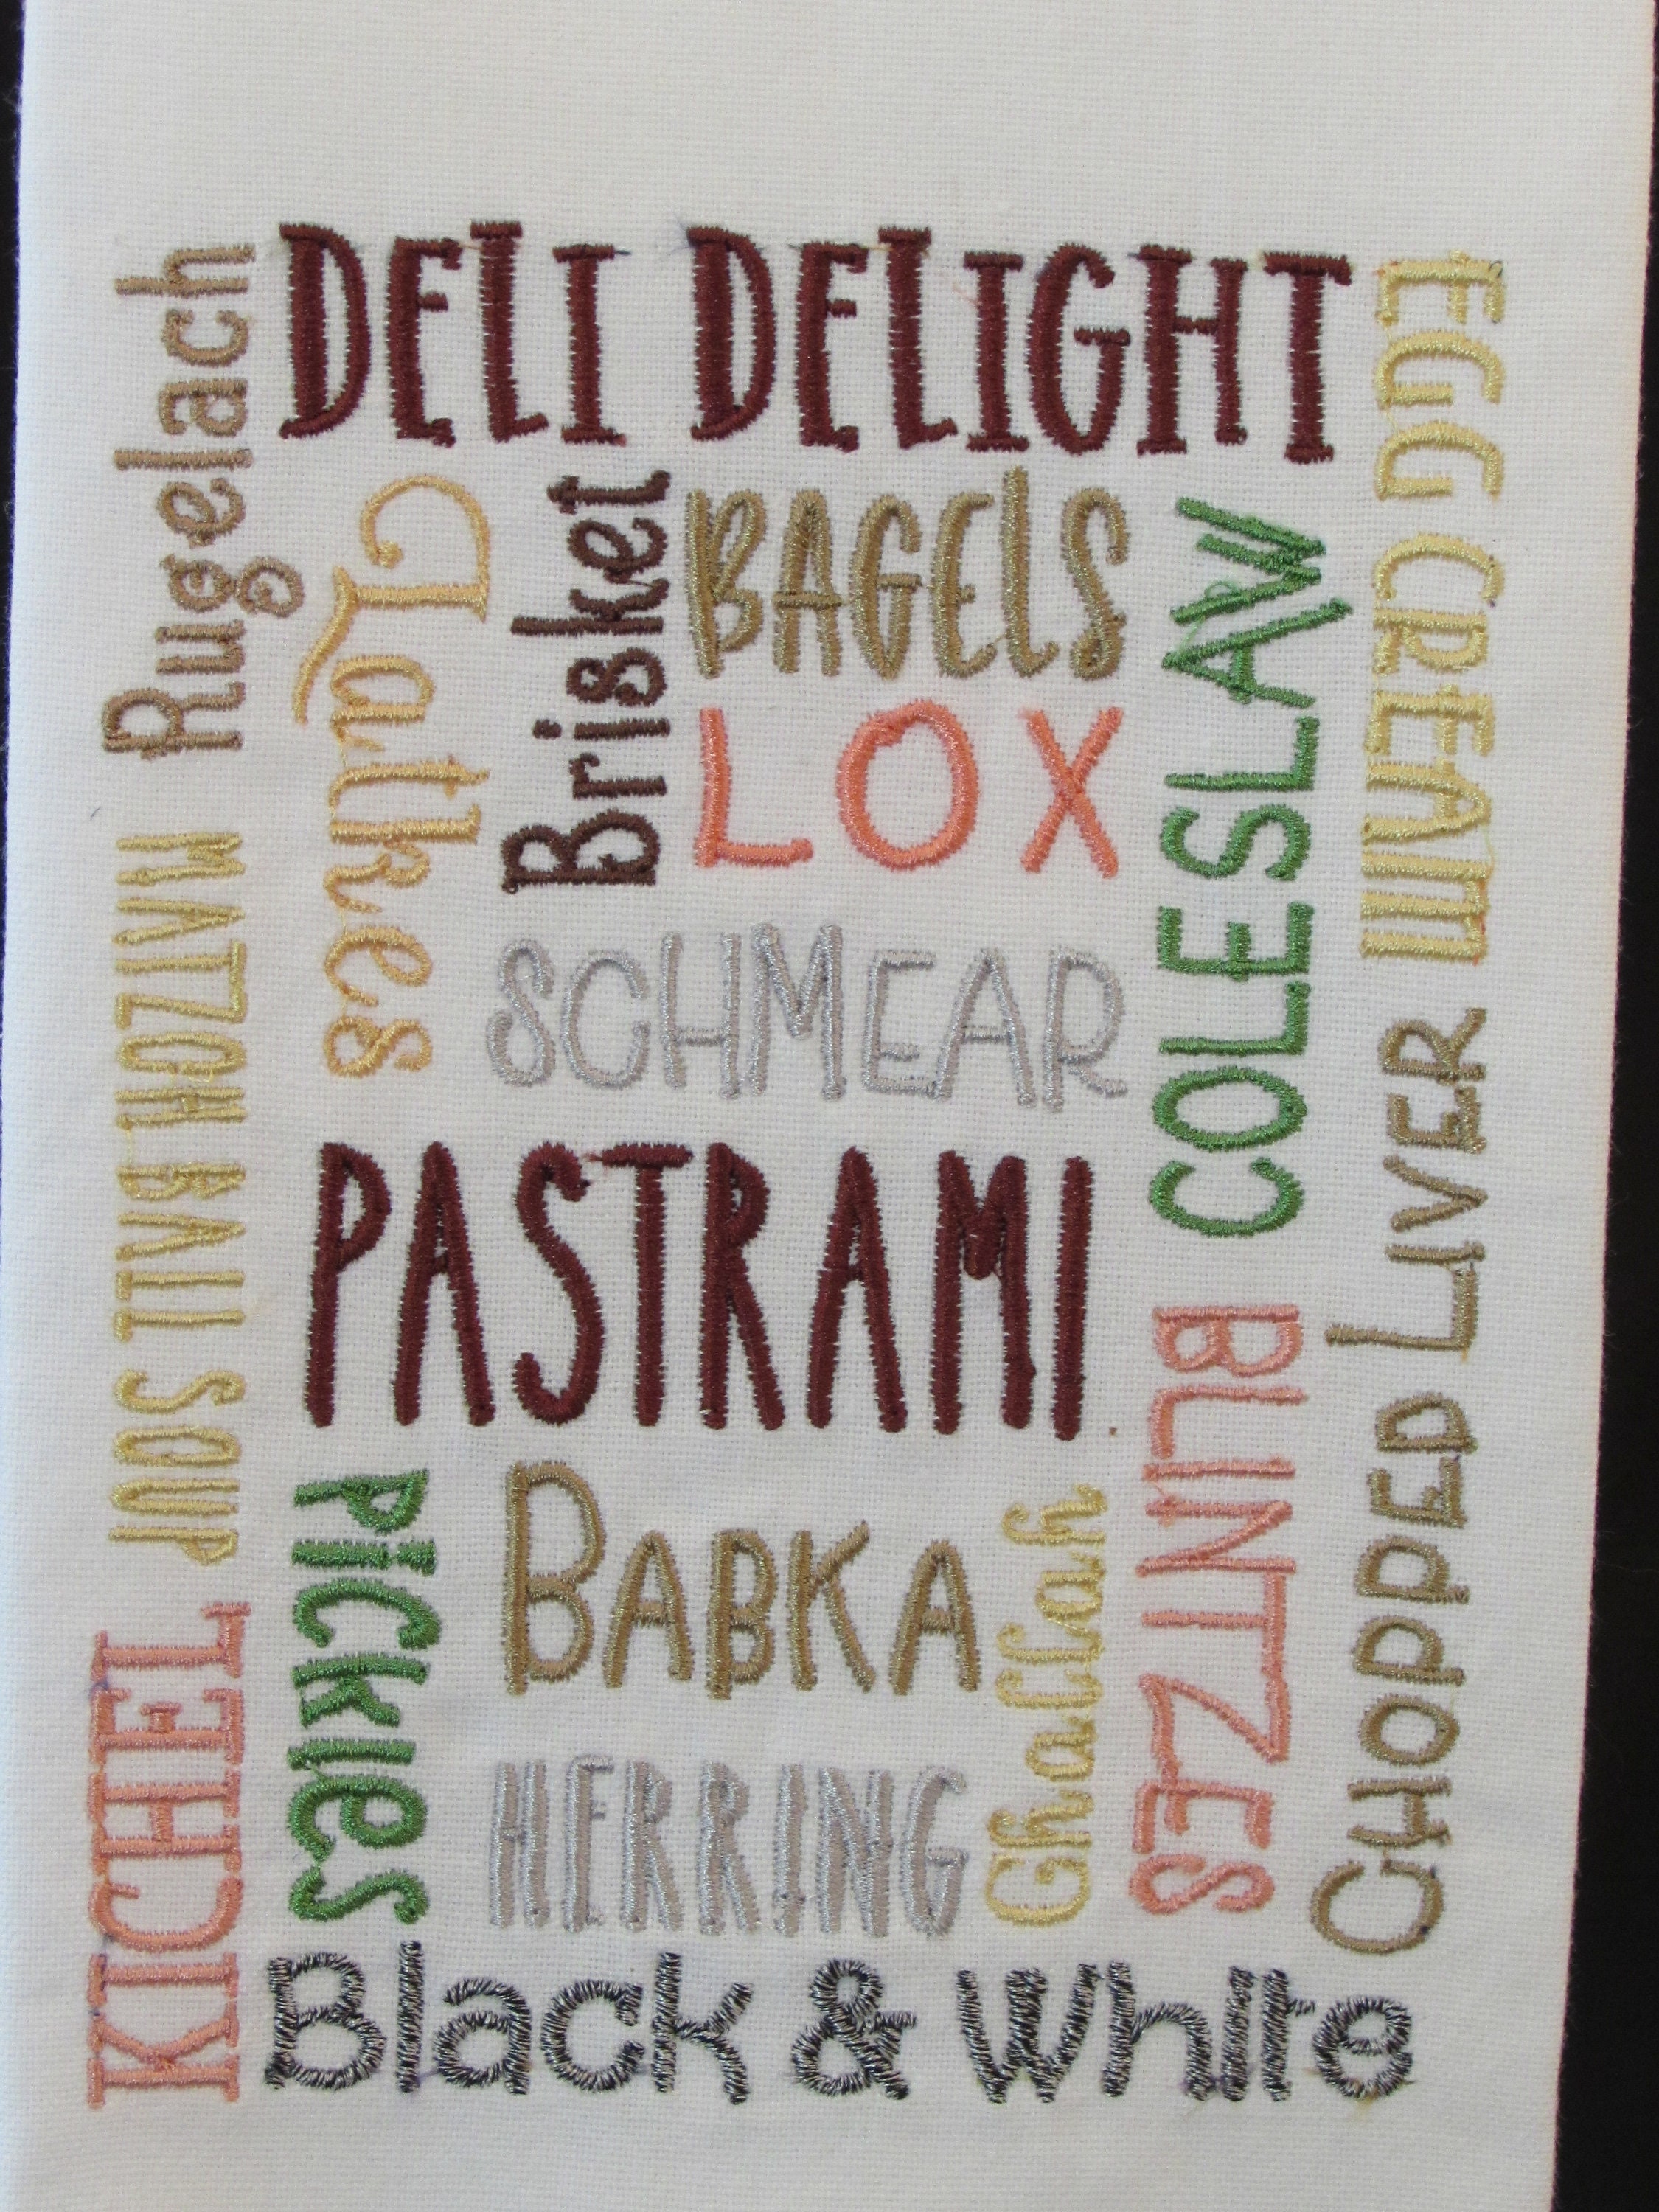 DELI DELIGHT
Rugelach
EGG CREAM
Latkes
Brisket
BAGELS
COLESLAW
LOX
MATZOH BALL SOUP
SCHMEAR
CHOPPED LIVER
PASTRAMI
BLINTZES
PICKlES
BABKA
Challah
KICHEL
HERRING
Black & White